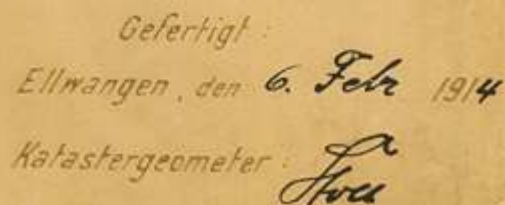 Gefertigt:
Ellwangen, den 6. Febr 1914
Katastergeometer: